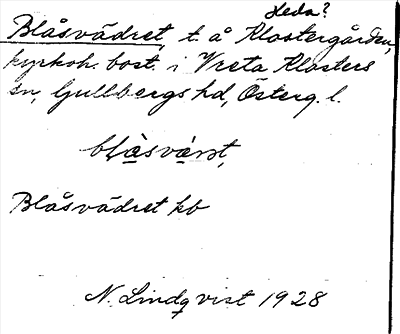 Heda?
Blåsvädret, t. å Klostergården,
kyrkoh. bost. i Vreta Klosters
sn, Gullbergs hd, Österg. l.
blåsvä̀rət,
Blåsvädret kb
N. Lindqvist 1928